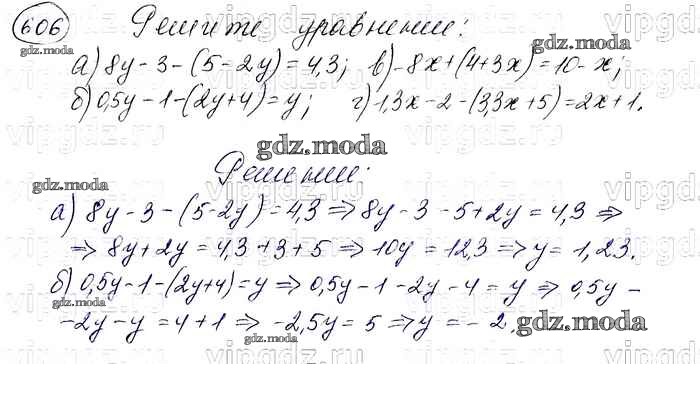 606 Решите уравнения:
а) 8y - 3 - (5 - 2y) = 4,3; в) -8x + (4 + 3x) = 10 - x;
б) 0,5y - 1 - (2y + 4) = y; г) -1,3x - 2 - (3,3x + 5) = 2x + 1.
Решении:
а) 8y - 3 - (5 - 2y) = 4,3 ⇒ 8y - 3 - 5 + 2y = 4,3 ⇒
⇒ 8y + 2y = 4,3 + 3 + 5 ⇒ 10y = 12,3 ⇒ y = 1,23.
б) 0,5y - 1 - (2y + 4) = y ⇒ 0,5y - 1 - 2y - 4 = y ⇒ 0,5y -
- 2y - y = 4 + 1 ⇒ -2,5y = 5 ⇒ y = -2.
gdz.moda